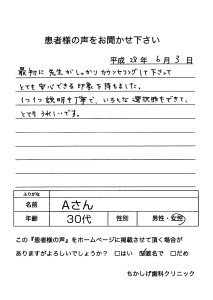 患者様の声をお聞かせ下さい
平成28年6月3日
最初に先生がしっかりカウンセリングして下さって
とても安心できる印象を持ちました。
1つ1つ説明も丁寧で、いろんな選択肢もできて、
とてもうれしいです。
ふりがな
名前 Aさん
年齢 30代 性別 男性・女性
この『患者様の声』をホームページに掲載させて頂く場合が
ありますがよろしいでしょうか? □はい ☑匿名で □だめ
ちかしげ歯科クリニック